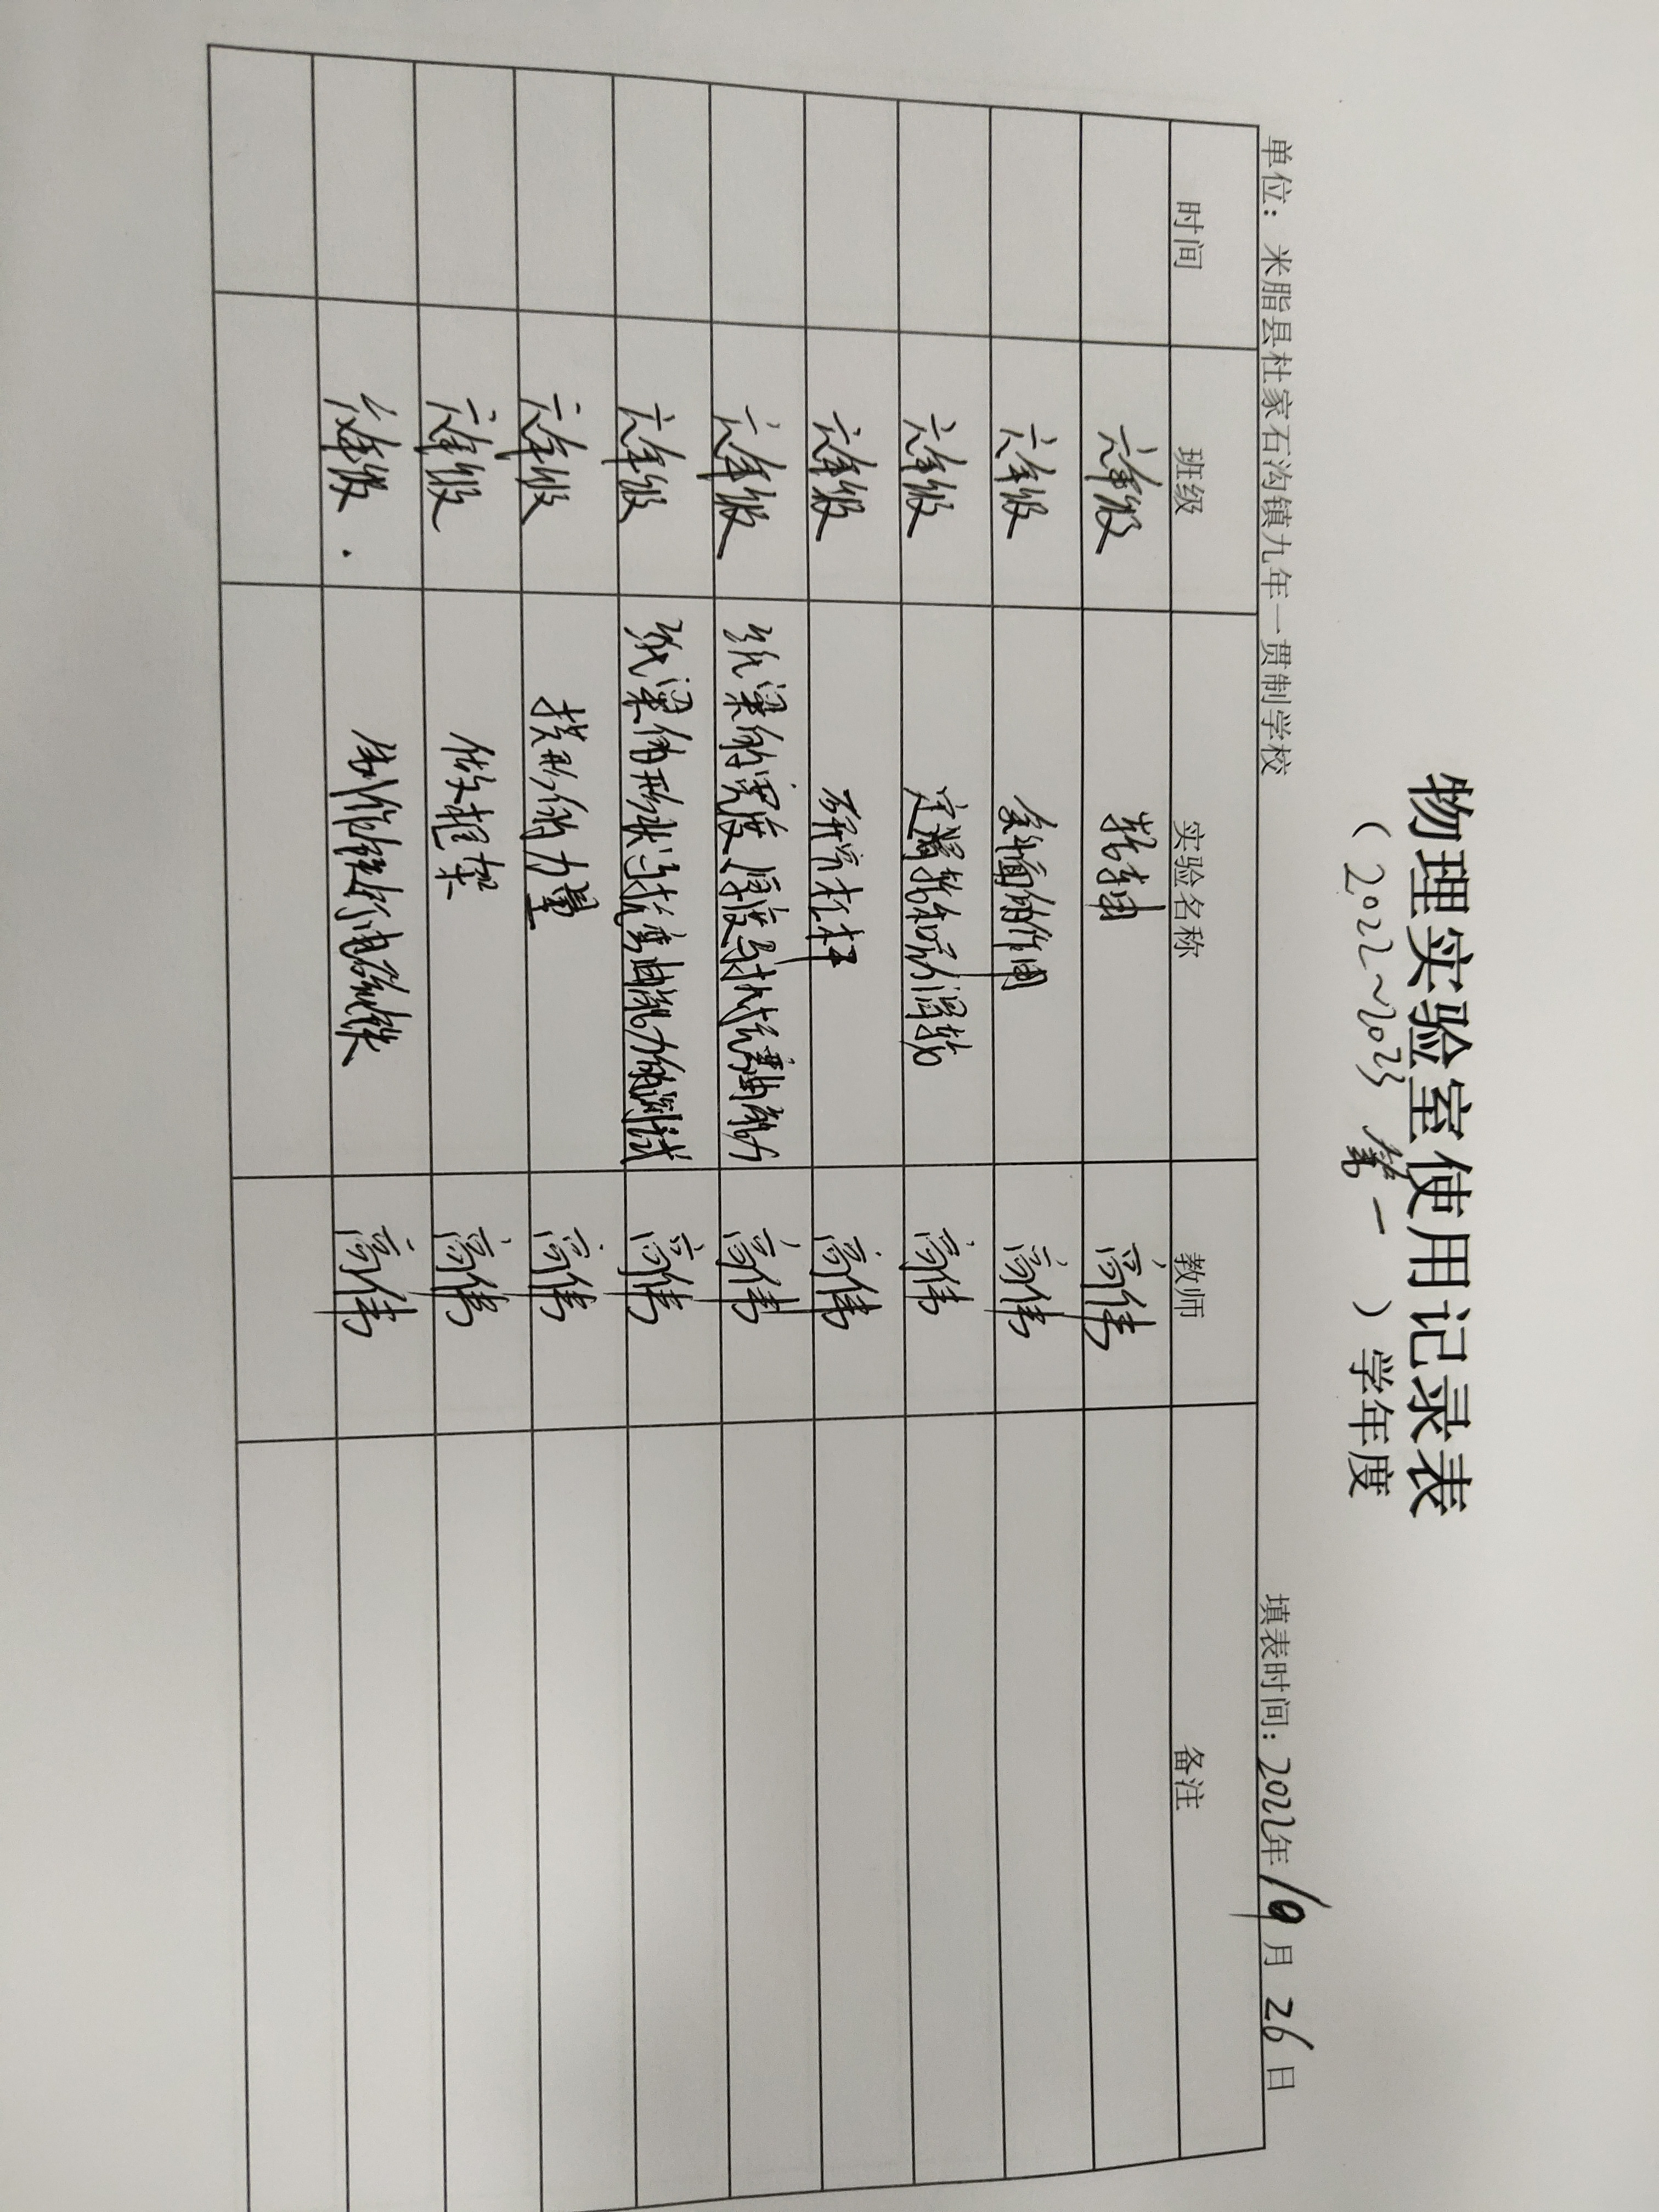 物理实验室使用记录表
（2022～2023 第一 ）学年度
单位：米脂县杜家石沟镇九年一贯制学校 填表时间：2022年10月26日
时间 班级 实验名称 教师 备注
六年级 轮轴 高伟
六年级 斜面的作用 高伟
六年级 定滑轮和动滑轮 高伟
六年级 研究杠杆 高伟
六年级 纸梁的宽度厚度与抗弯曲能力 高伟
六年级 纸梁的形状与抗弯曲能力的测试 高伟
六年级 拱形的力量 高伟
六年级 做框架 高伟
六年级. 制作铁钉电磁铁 高伟